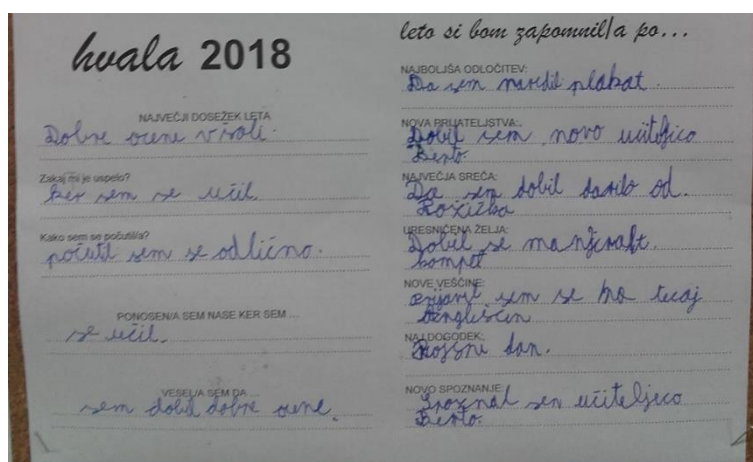 hvala 2018
NAJVEČJI DOSEŽEK LETA
Dobre ocene v šoli.
Zakaj mi je uspelo?
Ker sem se učil.
Kako sem se počutil/a?
počutil sem se odlično.
PONOSEN/A SEM NASE KER SEM ...
se učil.
VESEL/A SEM DA ...
sem dobil dobre ocene.
leto si bom zapomnil/a po...
NAJBOLJŠA ODLOČITEV:
Da sem naredil plakat.
NOVA PRIJATELJSTVA:
Dobil sem novo učiteljico
Berto.
NAJVEČJA SREČA:
Da sem dobil darilo od.
Božička
URESNIČENA ŽELJA:
Dobil se
NOVE VEŠČINE:
prijavil sem se na tecaj
NAJ DOGODEK:
Rojsni dan.
NOVO SPOZNANJE:
Spoznal sen učiteljico
Berto.